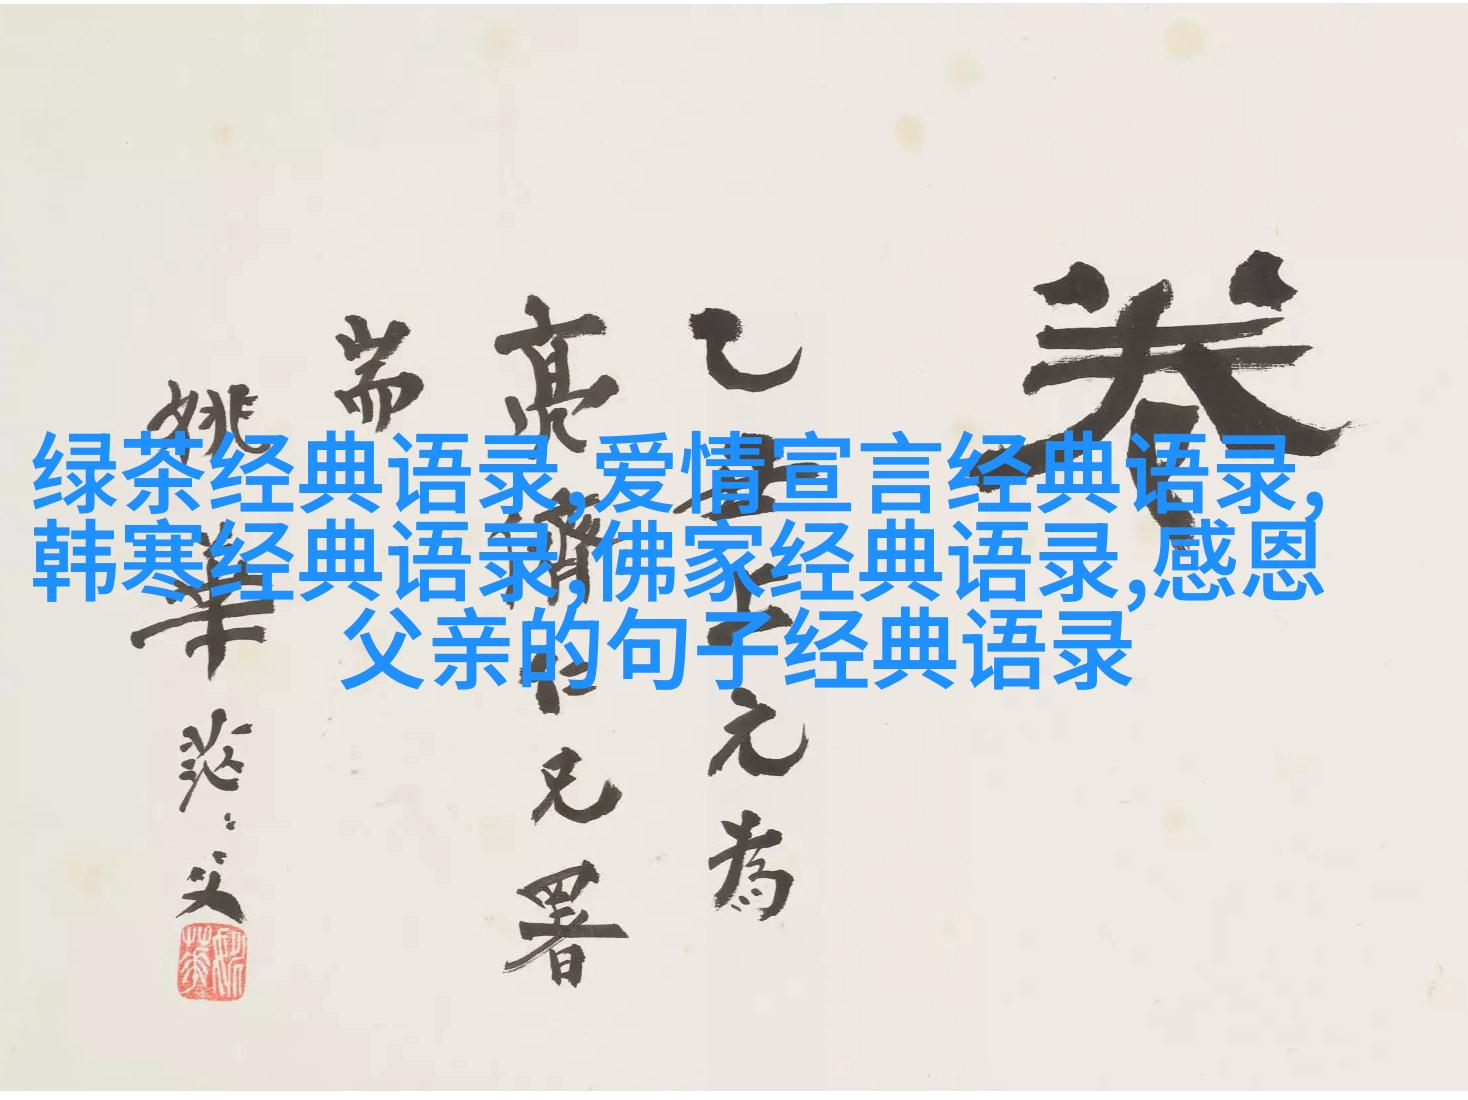 绿茶经典语录,爱情宣言经典语录,
韩寒经典语录,佛家经典语录,感恩
父亲的句子经典语录
卷
乙丑上元為
亮儕仁兄署
耑
姚華茫〻父
姚華